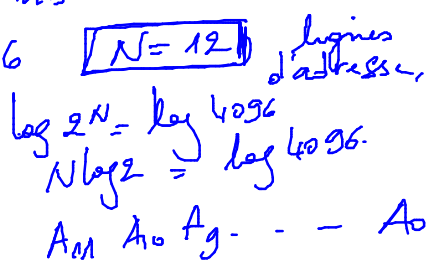 6 N = 12 lignes
d'adresse,
log 2^N = log 4096
N log 2 = log 4096.
A11 A10 A9 - - - A0